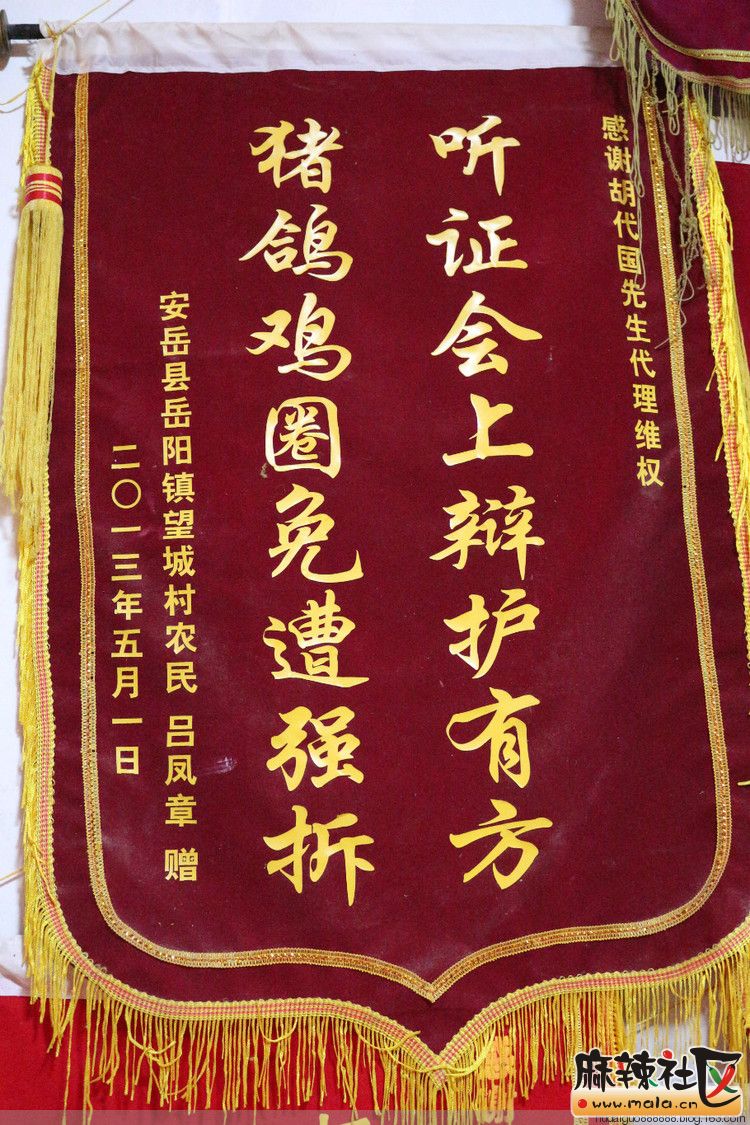 感谢胡代国先生代理维权
听证会上辩护有方
猪鸽鸡圈免遭强拆
安岳县岳阳镇望城村农民 吕凤章 赠
二〇一三年五月一日
麻辣社区
www.mala.cn
hudaiguo888888.blog.163.com